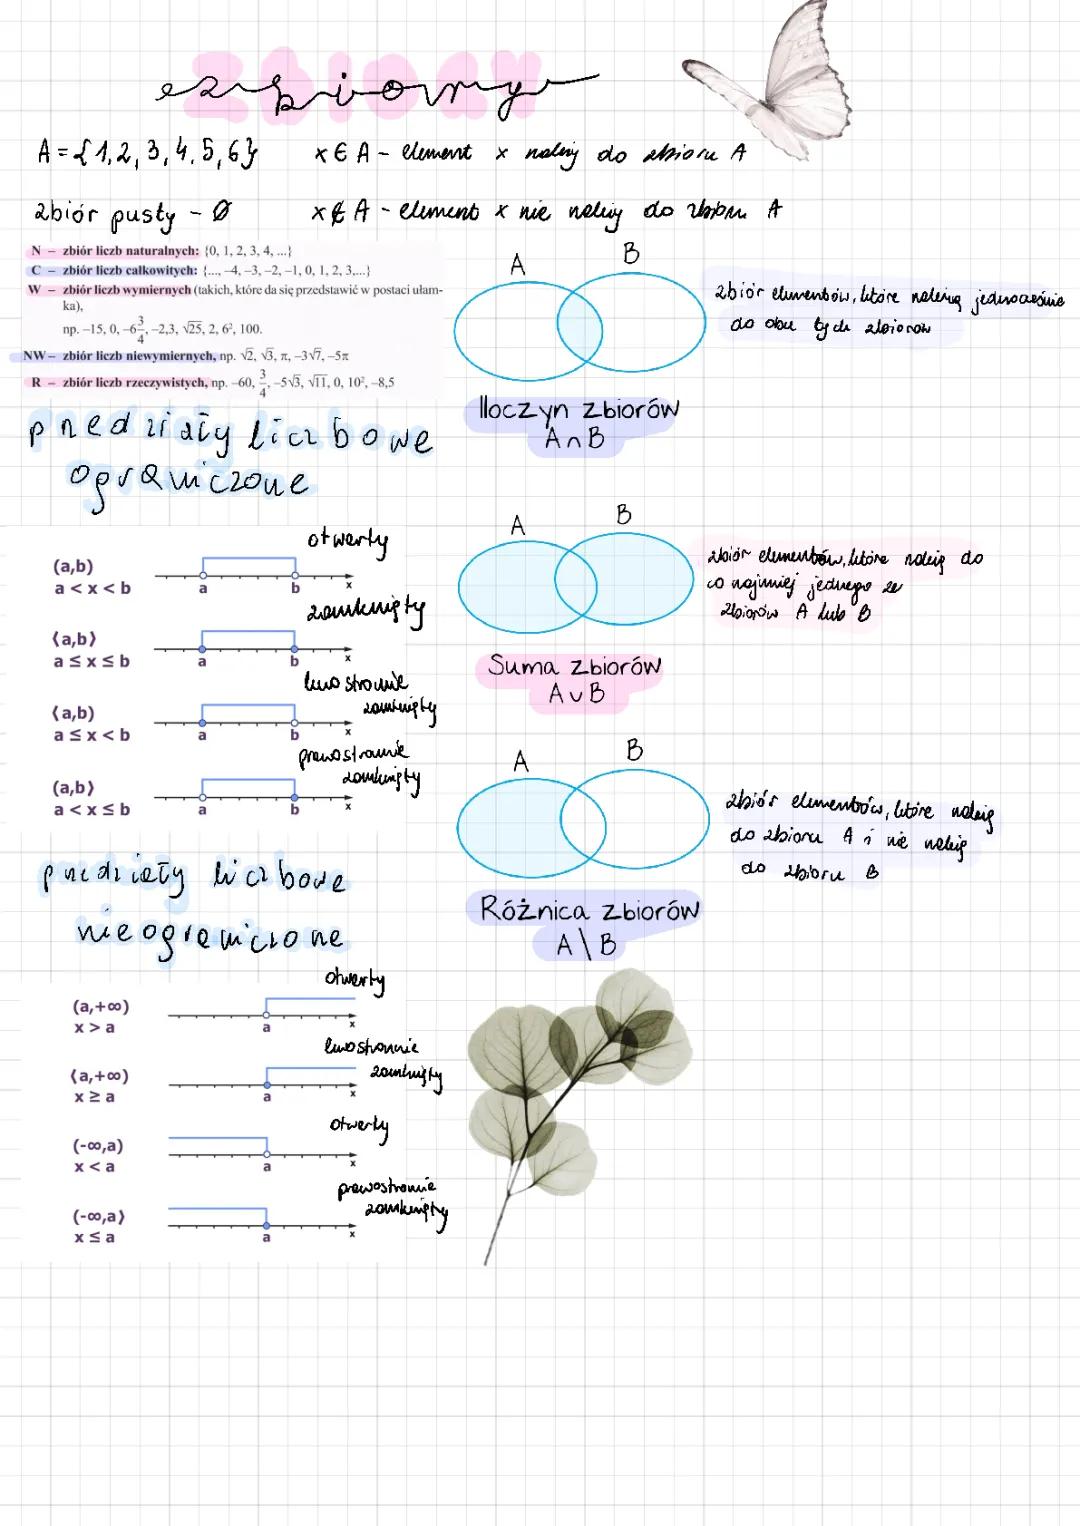 zbiory
A = {1, 2, 3, 4, 5, 6}
x ∈ A - element x należy do zbioru A
zbiór pusty - Ø
x ∉ A - element x nie należy do zbioru A
N – zbiór liczb naturalnych: {0, 1, 2, 3, 4, ...}
C – zbiór liczb całkowitych: {..., –4, –3, –2, –1, 0, 1, 2, 3,...}
W – zbiór liczb wymiernych (takich, które da się przedstawić w postaci ułam-
ka),
np. –15, 0, –6 3/4, –2,3, √25, 2, 6², 100.
NW – zbiór liczb niewymiernych, np. √2, √3, π, –3√7, –5π
R – zbiór liczb rzeczywistych, np. –60, 3/4, –5√3, √11, 0, 10², –8,5
przedziały liczbowe
ograniczone
otwarty
(a,b)
a < x < b
a b x
zamknięty
⟨a,b⟩
a ≤ x ≤ b
a b x
lewostronnie
zamknięty
⟨a,b)
a ≤ x < b
a b x
prawostronnie
zamknięty
(a,b⟩
a < x ≤ b
a b x
przedziały liczbowe
nieograniczone
otwarty
(a,+∞)
x > a
a x
lewostronnie
zamknięty
⟨a,+∞)
x ≥ a
a x
otwarty
(-∞,a)
x < a
a x
prawostronnie
zamknięty
(-∞,a⟩
x ≤ a
a x
A B
zbiór elementów, które należą jednocześnie
do obu tych zbiorów
Iloczyn zbiorów
A ∩ B
A B
zbiór elementów, które należą do
co najmniej jednego ze
zbiorów A lub B
Suma zbiorów
A ∪ B
A B
zbiór elementów, które należą
do zbioru A i nie należą
do zbioru B
Różnica zbiorów
A \ B